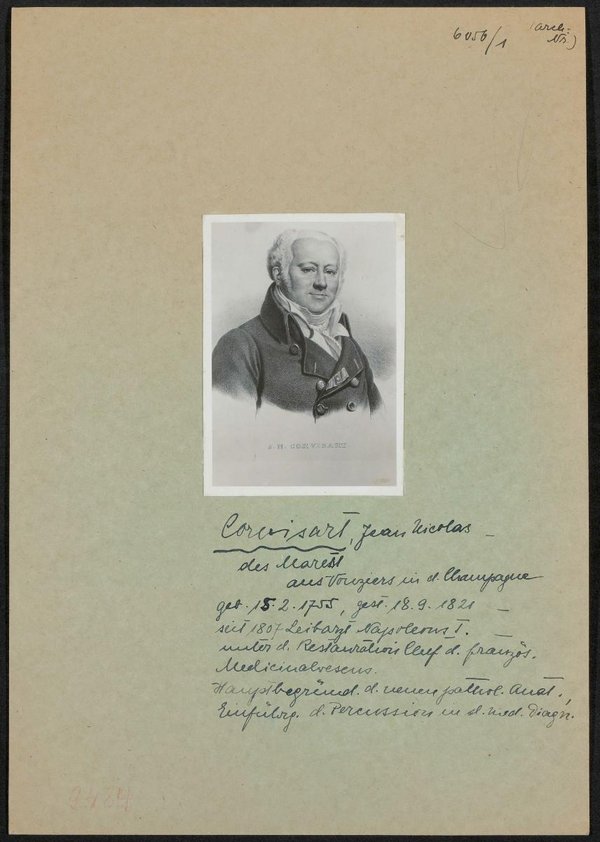 6056/1 (arch. Nr.)
J. N. CORVISART.
Corvisart, Jean Nicolas –
des Marest
aus Vouziers in d. Champagne
geb. 15.2.1755, gest. 18.9.1821 –
seit 1807 Leibarzt Napoleons I.
unter d. Restauration Chef d. französ.
Medicinalwesens.
Hauptbegründ. d. neuen pathol. Anat.,
Einführg. d. Percussion in d. med. Diagn.